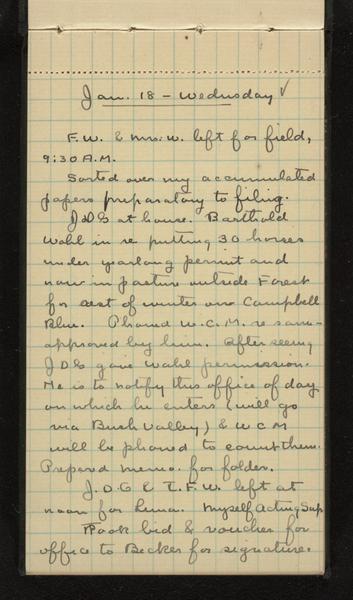 Jan. 18 - Wednesday √
F.W. & Mrs. W. left for field,
9:30 A.M.
Sorted over my accumulated
papers preparatory to filing.
JDG at house. Barthold
Wahl in re putting 30 horses
under yearlong permit and
now in pasture outside Forest
for rest of winter on Campbell
Blue. Phoned W.C.M. re same -
approved by him. After seeing
JDG gave Wahl permission.
He is to notify this office of day
on which he enters (will go
via Bush Valley) & WCM
will be phoned to count them.
Prepared memo. for folder.
J.D.G & T.F.W. left at
noon for Luna. Myself Acting Sup
Took bid & voucher for
office to Becker for signature.